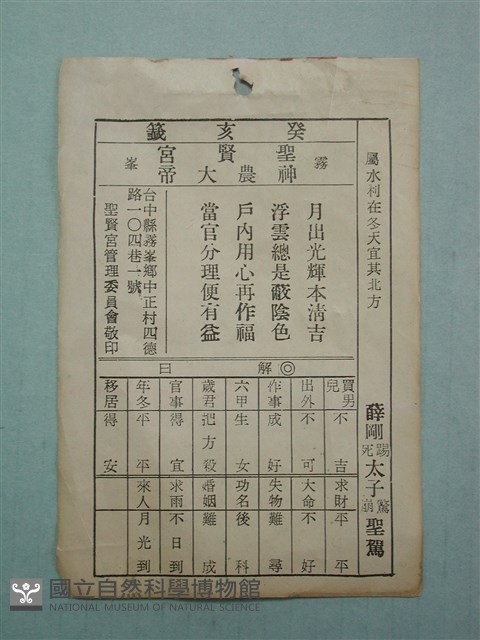 癸亥籤
霧峯
聖賢宮
神農大帝
屬水利在冬天宜其北方
薛剛踢死太子驚崩聖駕
月出光輝本清吉
浮雲總是蔽陰色
戶內用心再作福
當官分理便有益
台中縣霧峯鄉中正村四德
路一〇四巷一號
聖賢宮管理委員會敬印
◎解曰
買男兒 不吉
求財 平平
出外 不可
大命 不好
作事 成好
失物 難尋
六甲 生女
功名 後科
歲君 把方殺
婚姻 難成
官事 得宜
求雨 不日到
年冬 平平
來人 月光到
移居 得安
國立自然科學博物館
NATIONAL MUSEUM OF NATURAL SCIENCE